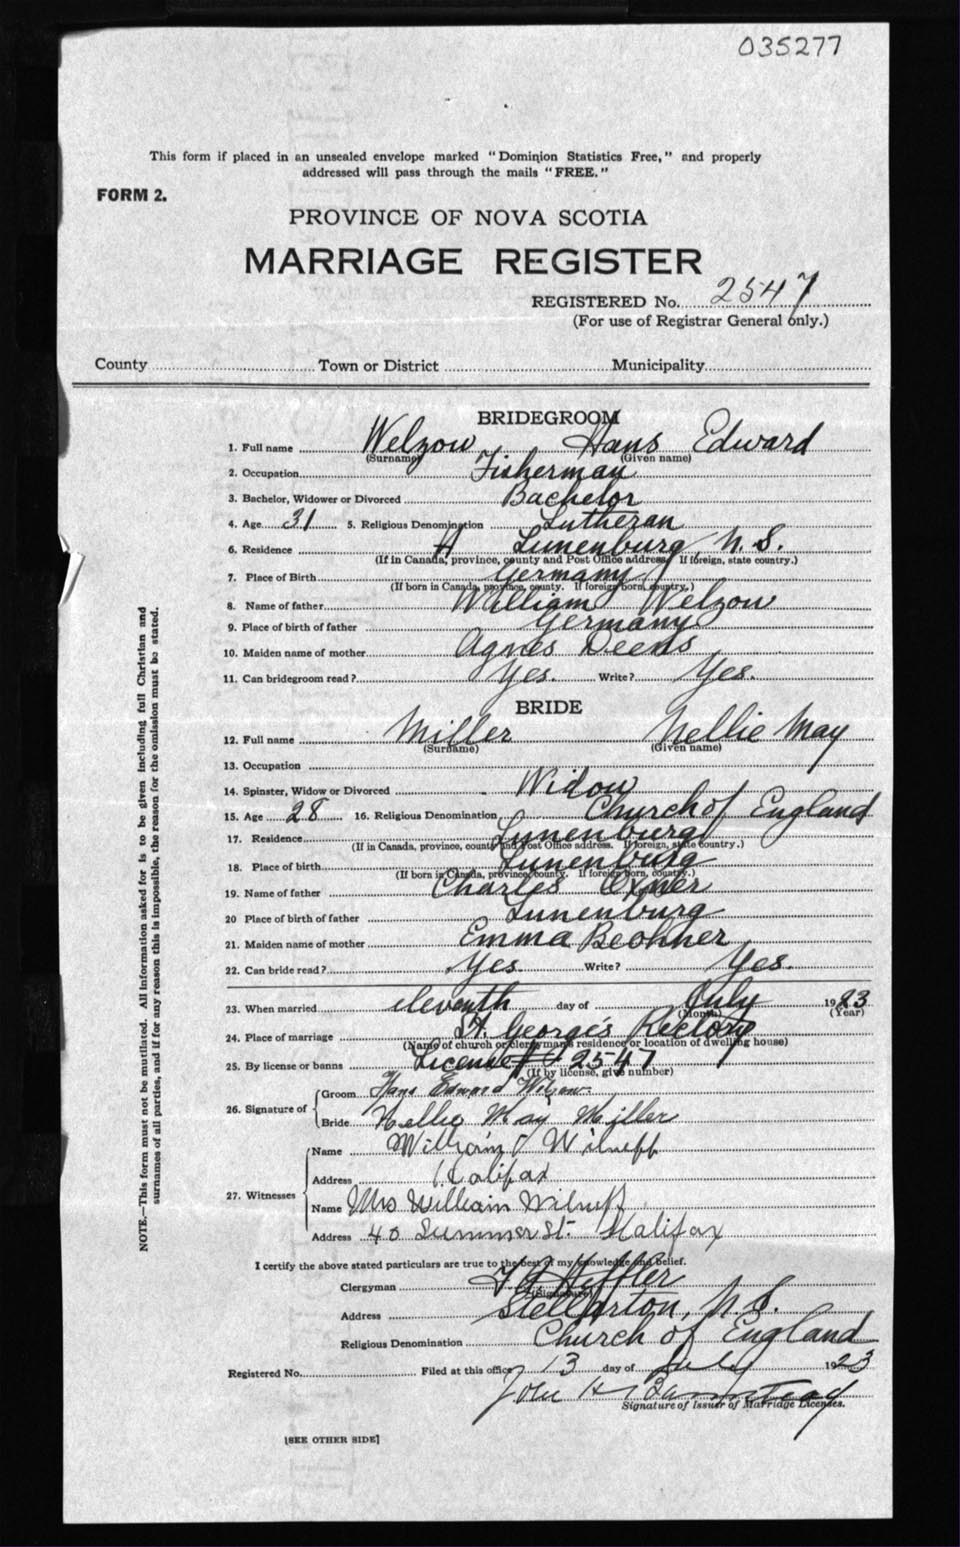 035277
This form if placed in an unsealed envelope marked "Dominion Statistics Free," and properly
addressed will pass through the mails "FREE."
FORM 2.
PROVINCE OF NOVA SCOTIA
MARRIAGE REGISTER
REGISTERED No. 2547
(For use of Registrar General only.)
County Town or District Municipality
BRIDEGROOM
1. Full name Welzow Hans Edward
(Surname) (Given name)
2. Occupation Fisherman
3. Bachelor, Widower or Divorced Bachelor
4. Age 31 5. Religious Denomination Lutheran
6. Residence Lunenburg, N. S.
(If in Canada, province, county and Post Office address. If foreign, state country.)
7. Place of Birth Germany
(If born in Canada, province, county. If foreign born, country.)
8. Name of father William Welzow
9. Place of birth of father Germany
10. Maiden name of mother Agnes Deens
11. Can bridegroom read? Yes. Write? Yes.
BRIDE
12. Full name Miller Nellie May
(Surname) (Given name)
13. Occupation
14. Spinster, Widow or Divorced Widow
15. Age 28 16. Religious Denomination Church of England
17. Residence Lunenburg
(If in Canada, province, county and Post Office address. If foreign, state country.)
18. Place of birth Lunenburg
(If born in Canada, province, county. If foreign born, country.)
19. Name of father Charles Oxner
20 Place of birth of father Lunenburg
21. Maiden name of mother Emma Beohner
22. Can bride read? Yes. Write? Yes.
23. When married eleventh day of July 1923
(Month) (Year)
24. Place of marriage St. George's Rectory
(Name of church or clergyman's residence or location of dwelling house)
25. By license or banns License # 2547
(If by license, give number)
26. Signature of Groom Hans Edward Welzow.
Bride Nellie May Miller
27. Witnesses Name William Wilneff
Address Halifax
Name Mrs William Wilneff
Address 40 Summer St. Halifax
I certify the above stated particulars are true to the best of my knowledge and belief.
Clergyman Heffler
(Signature)
Address Stellarton, N. S.
Religious Denomination Church of England
Registered No. Filed at this office 13 day of July 1923
John H Barnstead
Signature of Issuer of Marriage Licenses.
[SEE OTHER SIDE]
NOTE.—This form must not be mutilated. All information asked for is to be given including full Christian and
surnames of all parties, and if for any reason this is impossible, the reason for the omission must be stated.